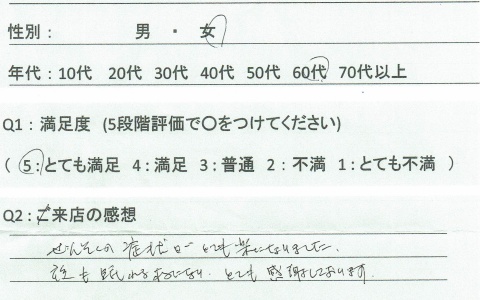 性別： 男 ・ 女
年代：10代 20代 30代 40代 50代 60代 70代以上
Q1：満足度 (5段階評価で〇をつけてください)
（ 5：とても満足 4：満足 3：普通 2：不満 1：とても不満 ）
Q2：ご来店の感想
ぜんそくの症状がとても楽になりました。
夜も眠れるようになり、とても感謝しております。